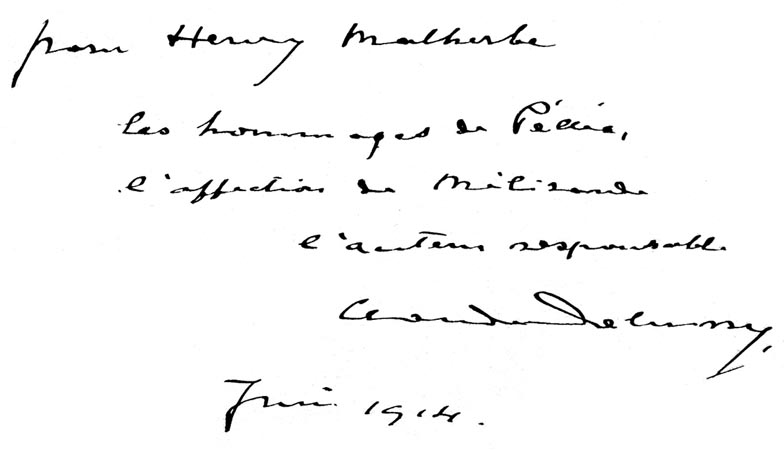 pour Henry Malherbe
les hommages de Pélléas,
l'affection de Mélisande
l'auteur responsable
Claude Debussy,
Juin 1914.